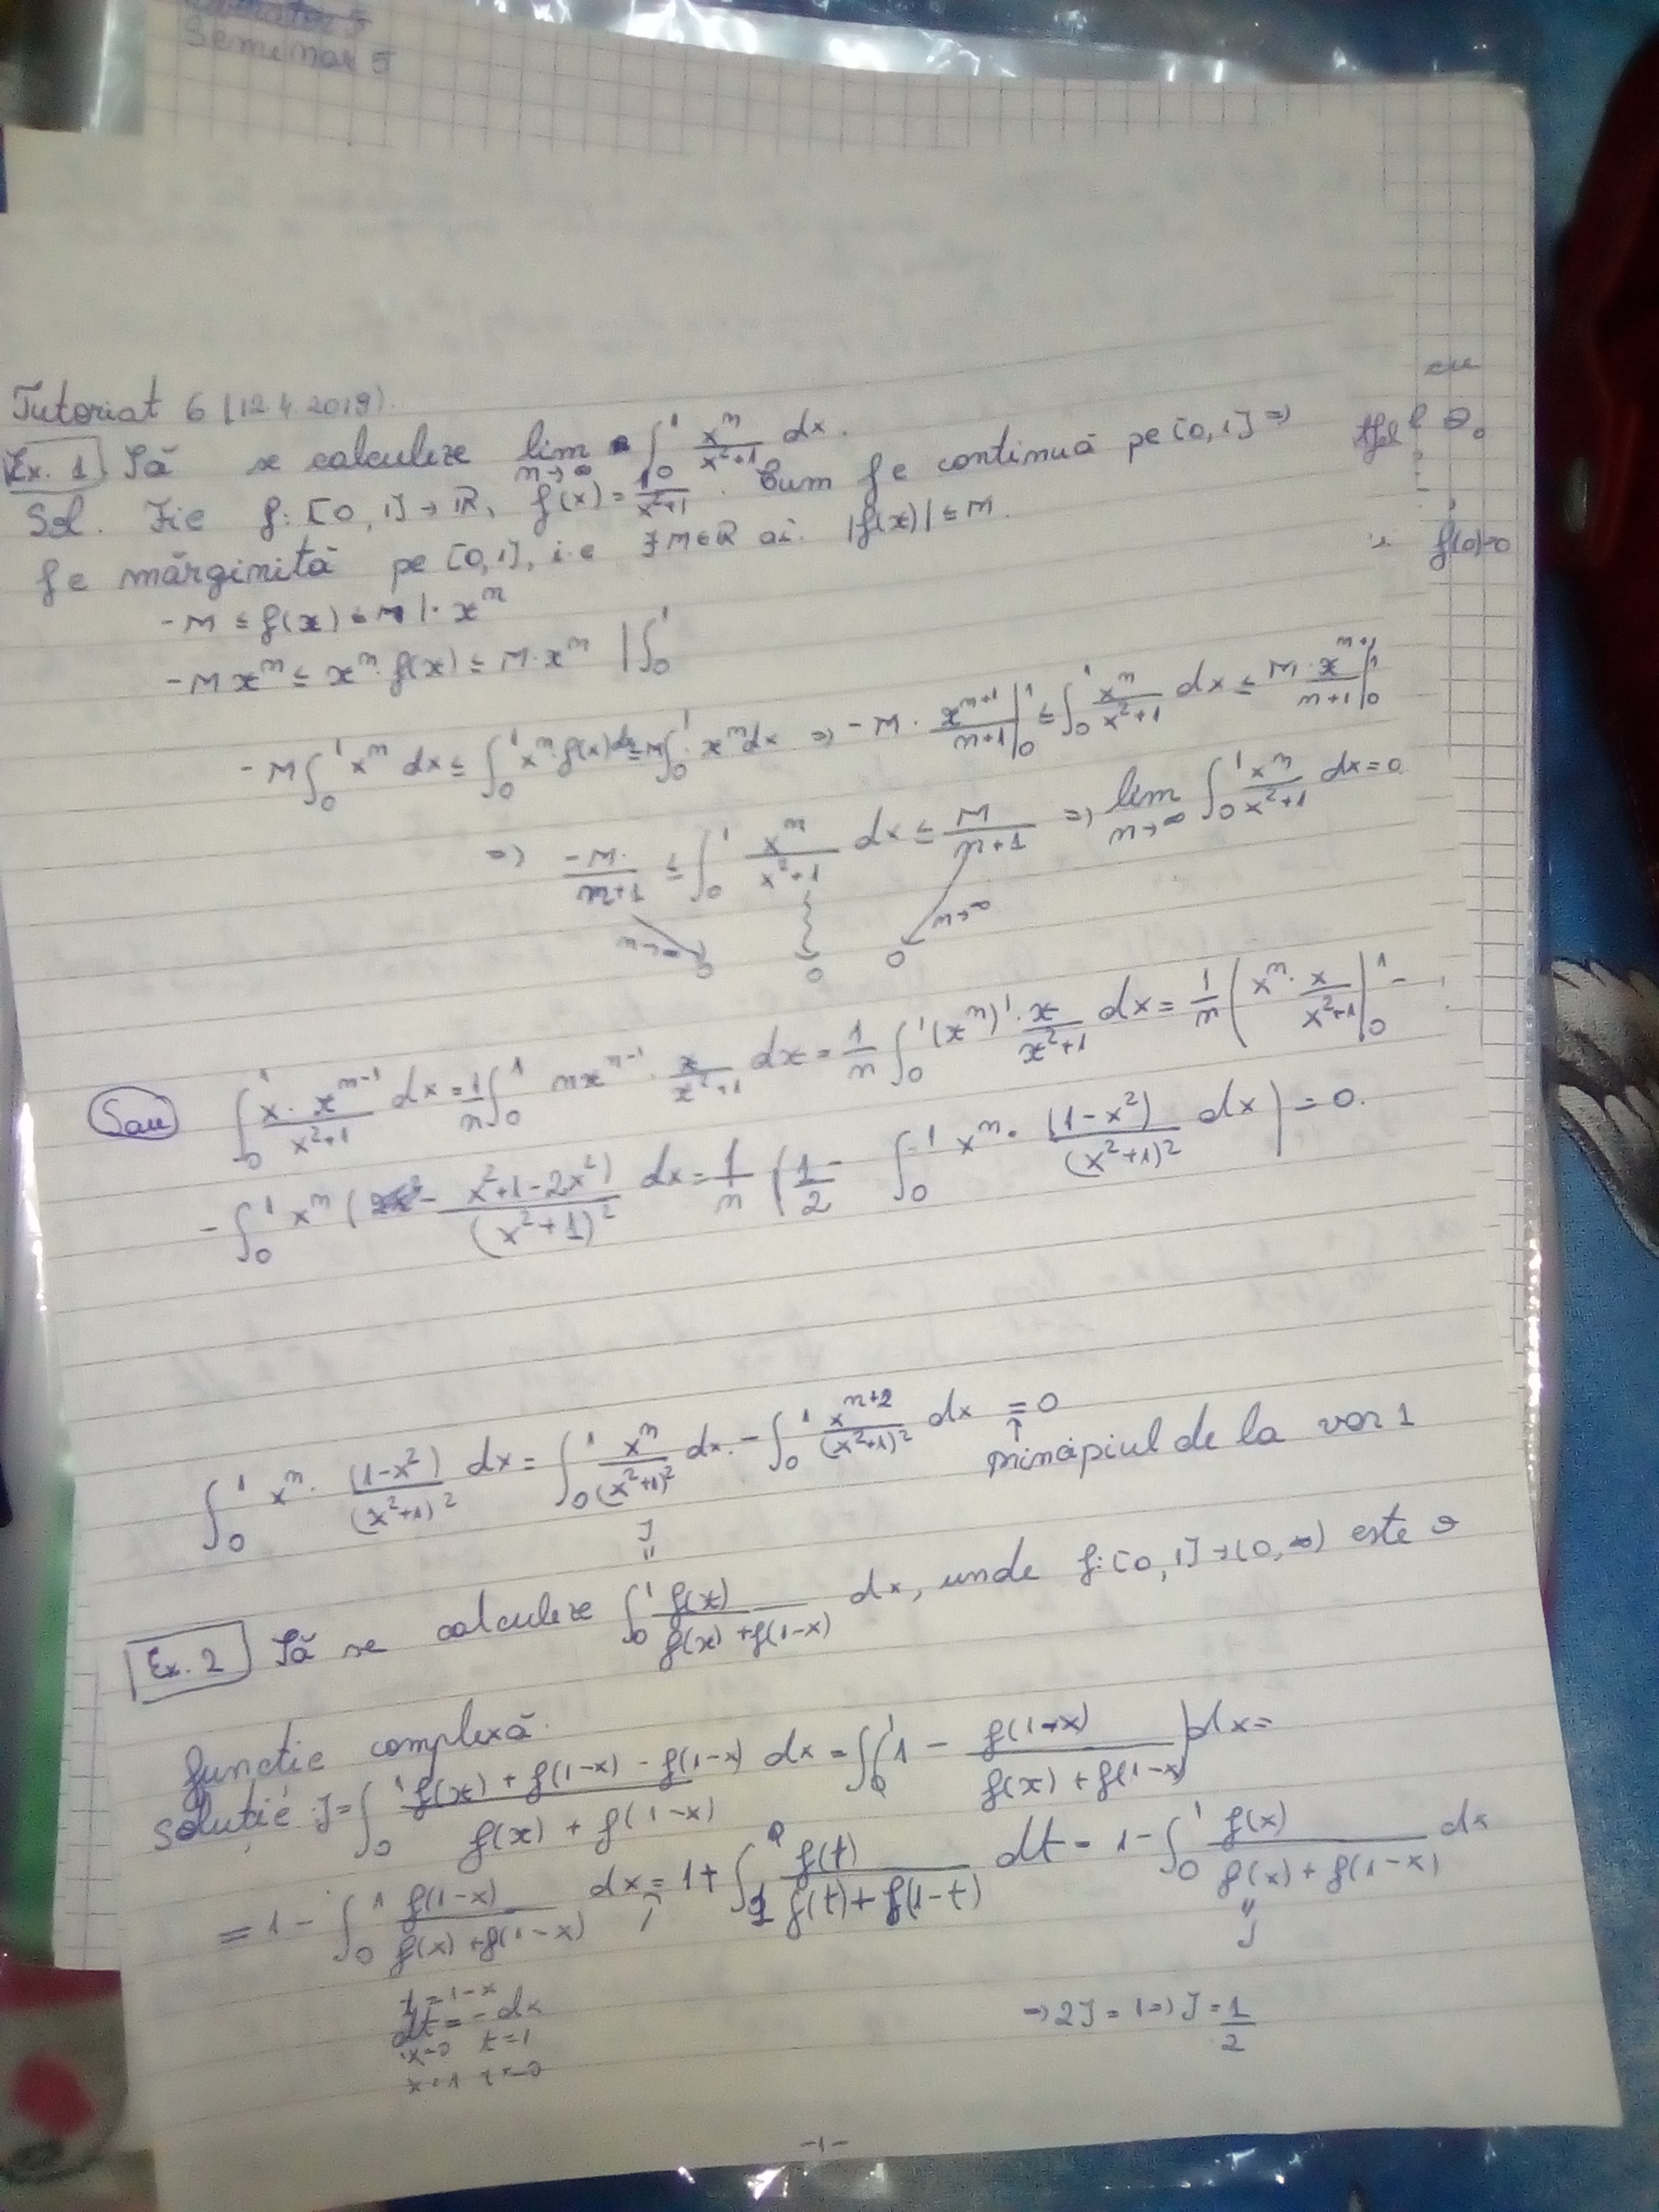 Seminar 5
Tutoriat 6 (12.4.2019).
Ex. 1 Să se calculeze lim n→∞ ∫₀¹ xⁿ/(x²+1) dx.
Sol. Fie f: [0,1] → ℝ, f(x) = 1/(x²+1). Cum f e continuă pe [0,1] ⇒
f e mărginită pe [0,1], i.e ∃ M∈ℝ aî. |f(x)| ≤ M.
-M ≤ f(x) ≤ M |· xⁿ
-M xⁿ ≤ xⁿ· f(x) ≤ M·xⁿ | ∫₀¹
-M ∫₀¹ xⁿ dx ≤ ∫₀¹ xⁿ·f(x) dx ≤ M ∫₀¹ xⁿ dx ⇒ -M · xⁿ⁺¹/(n+1) |₀¹ ≤ ∫₀¹ xⁿ/(x²+1) dx ≤ M · xⁿ⁺¹/(n+1) |₀¹
⇒ -M/(n+1) ≤ ∫₀¹ xⁿ/(x²+1) dx ≤ M/(n+1) ⇒ lim n→∞ ∫₀¹ xⁿ/(x²+1) dx = 0
n→∞ 0 0 0 n→∞
Sau ∫₀¹ x·xⁿ⁻¹/(x²+1) dx = 1/n ∫₀¹ nxⁿ⁻¹ · x/(x²+1) dx = 1/n ∫₀¹ (xⁿ)' · x/(x²+1) dx = 1/n ( xⁿ · x/(x²+1) |₀¹ -
- ∫₀¹ xⁿ ( (x²+1-2x²)/(x²+1)² dx = 1/n ( 1/2 - ∫₀¹ xⁿ · (1-x²)/(x²+1)² dx ) = 0.
∫₀¹ xⁿ · (1-x²)/(x²+1)² dx = ∫₀¹ xⁿ/(x²+1)² dx - ∫₀¹ xⁿ⁺²/(x²+1)² dx = 0
↑
principiul de la var 1
J
"
Ex. 2 Să se calculeze ∫₀¹ f(x)/(f(x)+f(1-x)) dx, unde f: [0,1] → (0,∞) este o
funcție complexă.
Soluție: J = ∫₀¹ (f(x)+f(1-x)-f(1-x))/(f(x)+f(1-x)) dx = ∫₀¹ (1 - f(1-x)/(f(x)+f(1-x))) dx =
= 1 - ∫₀¹ f(1-x)/(f(x)+f(1-x)) dx = 1 + ∫₁⁰ f(t)/(f(t)+f(1-t)) dt = 1 - ∫₀¹ f(x)/(f(x)+f(1-x)) dx
"
J
t = 1-x
dt = -dx
x=0 t=1
x=1 t=0
⇒ 2J = 1 ⇒ J = 1/2
-1-
f(0)=0